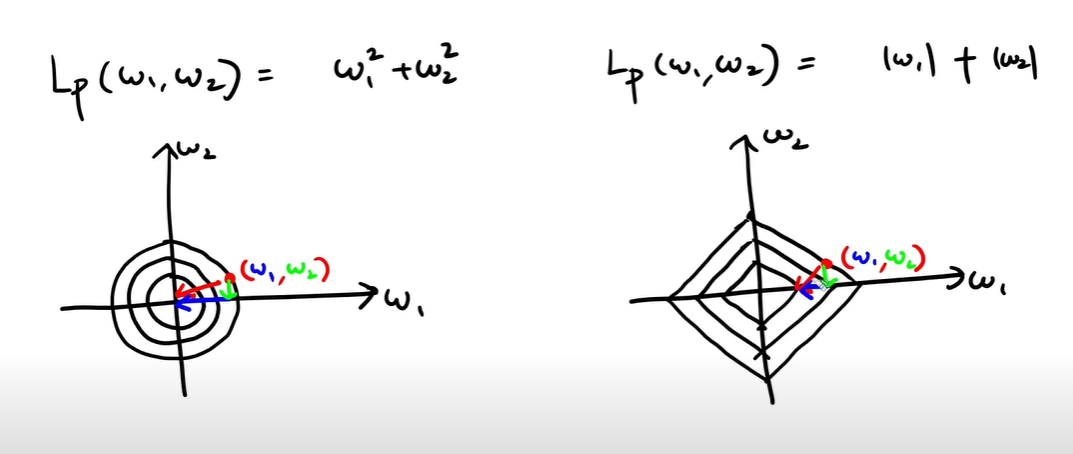 Lp(ω₁,ω₂) = ω₁²+ω₂²
Lp(ω₁,ω₂) = |ω₁| + |ω₂|
ω₂
(ω₁,ω₂)
ω₁
ω₂
(ω₁,ω₂)
ω₁